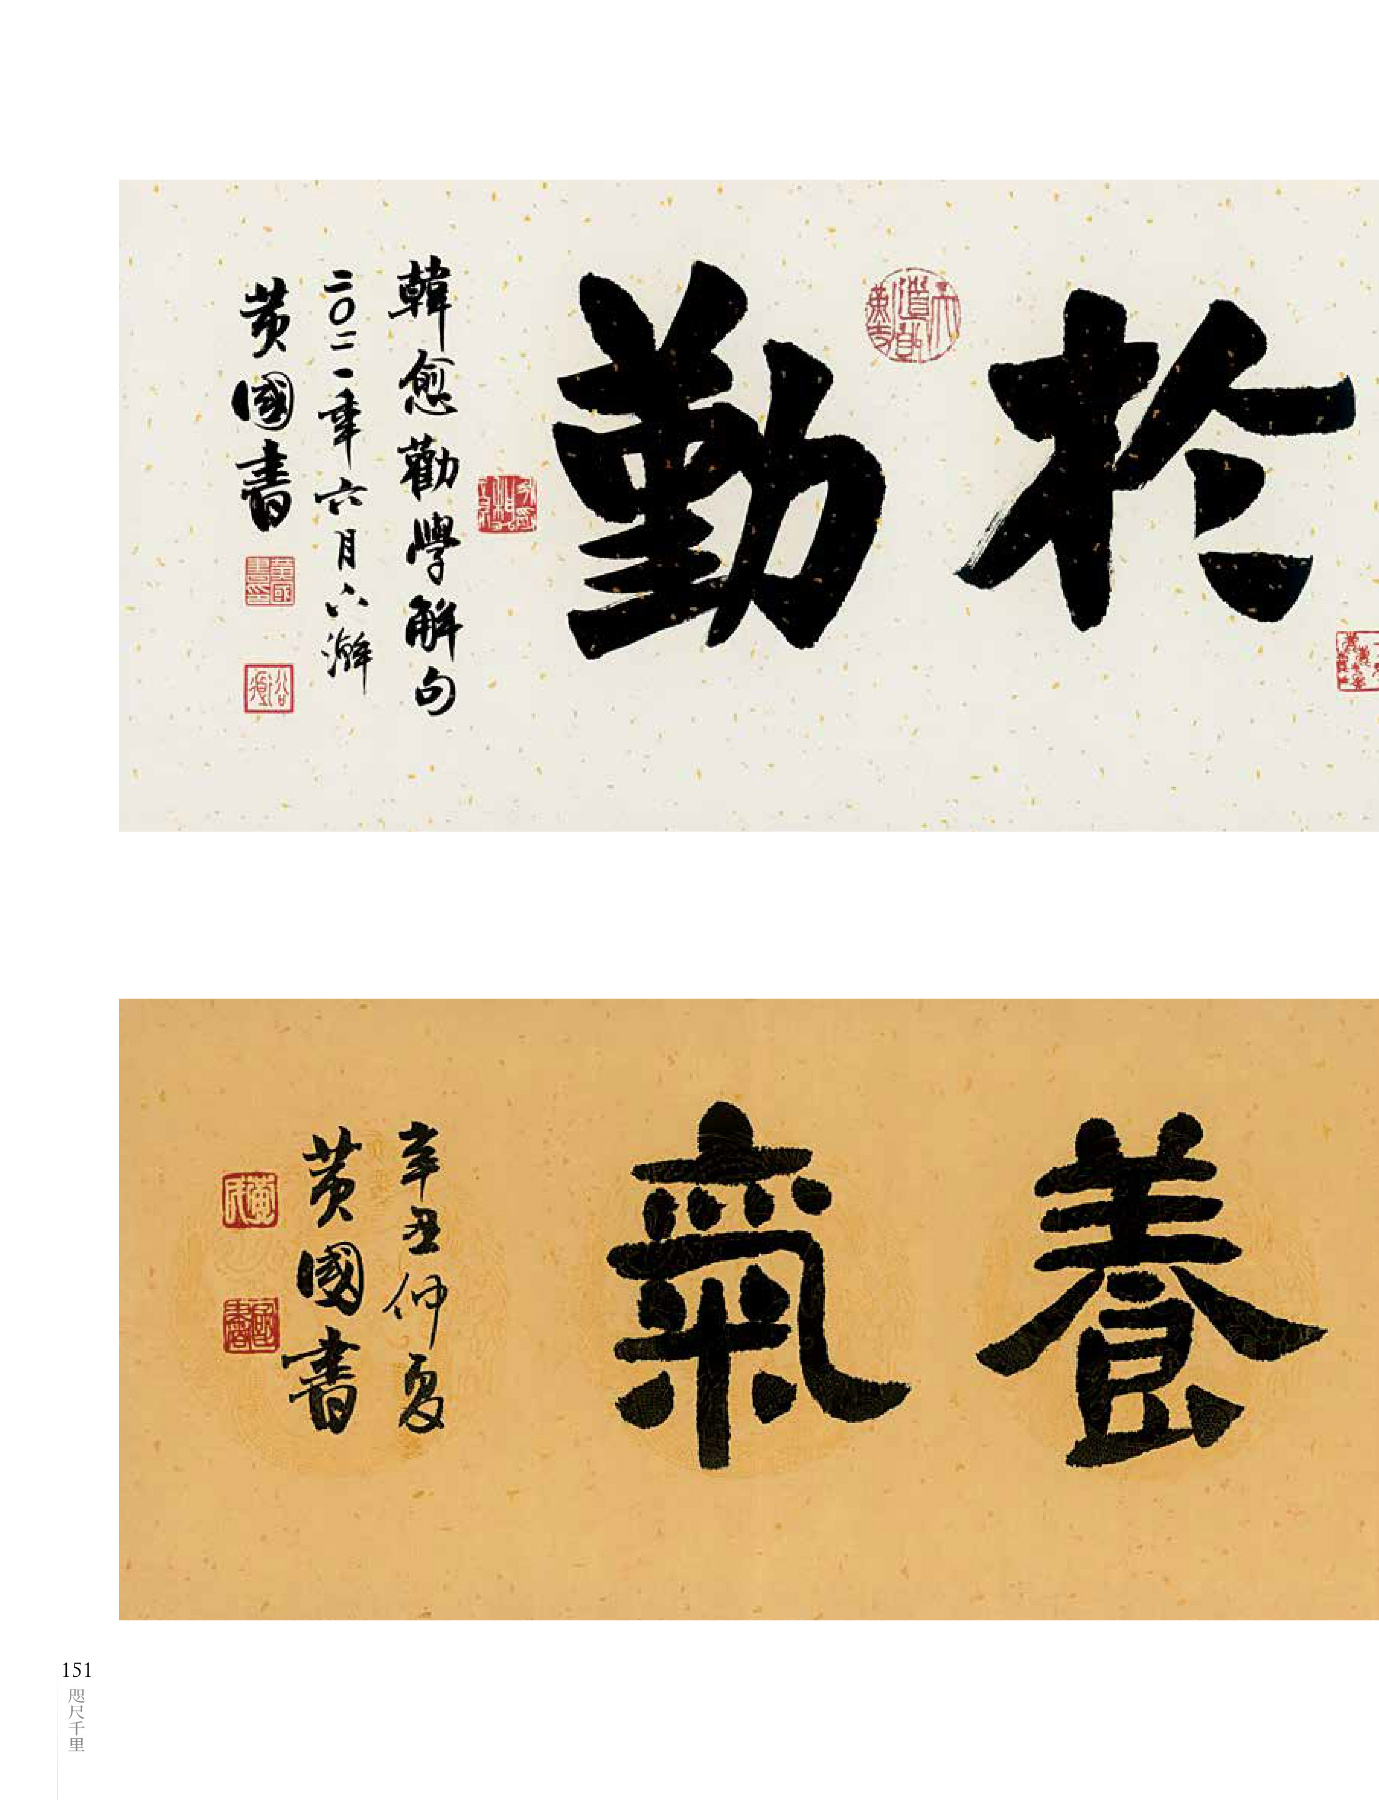 於勤
韓愈勸學解句
二〇二一年六月下澣
黃國書
養氣
辛丑仲夏
黃國書
151
咫尺千里